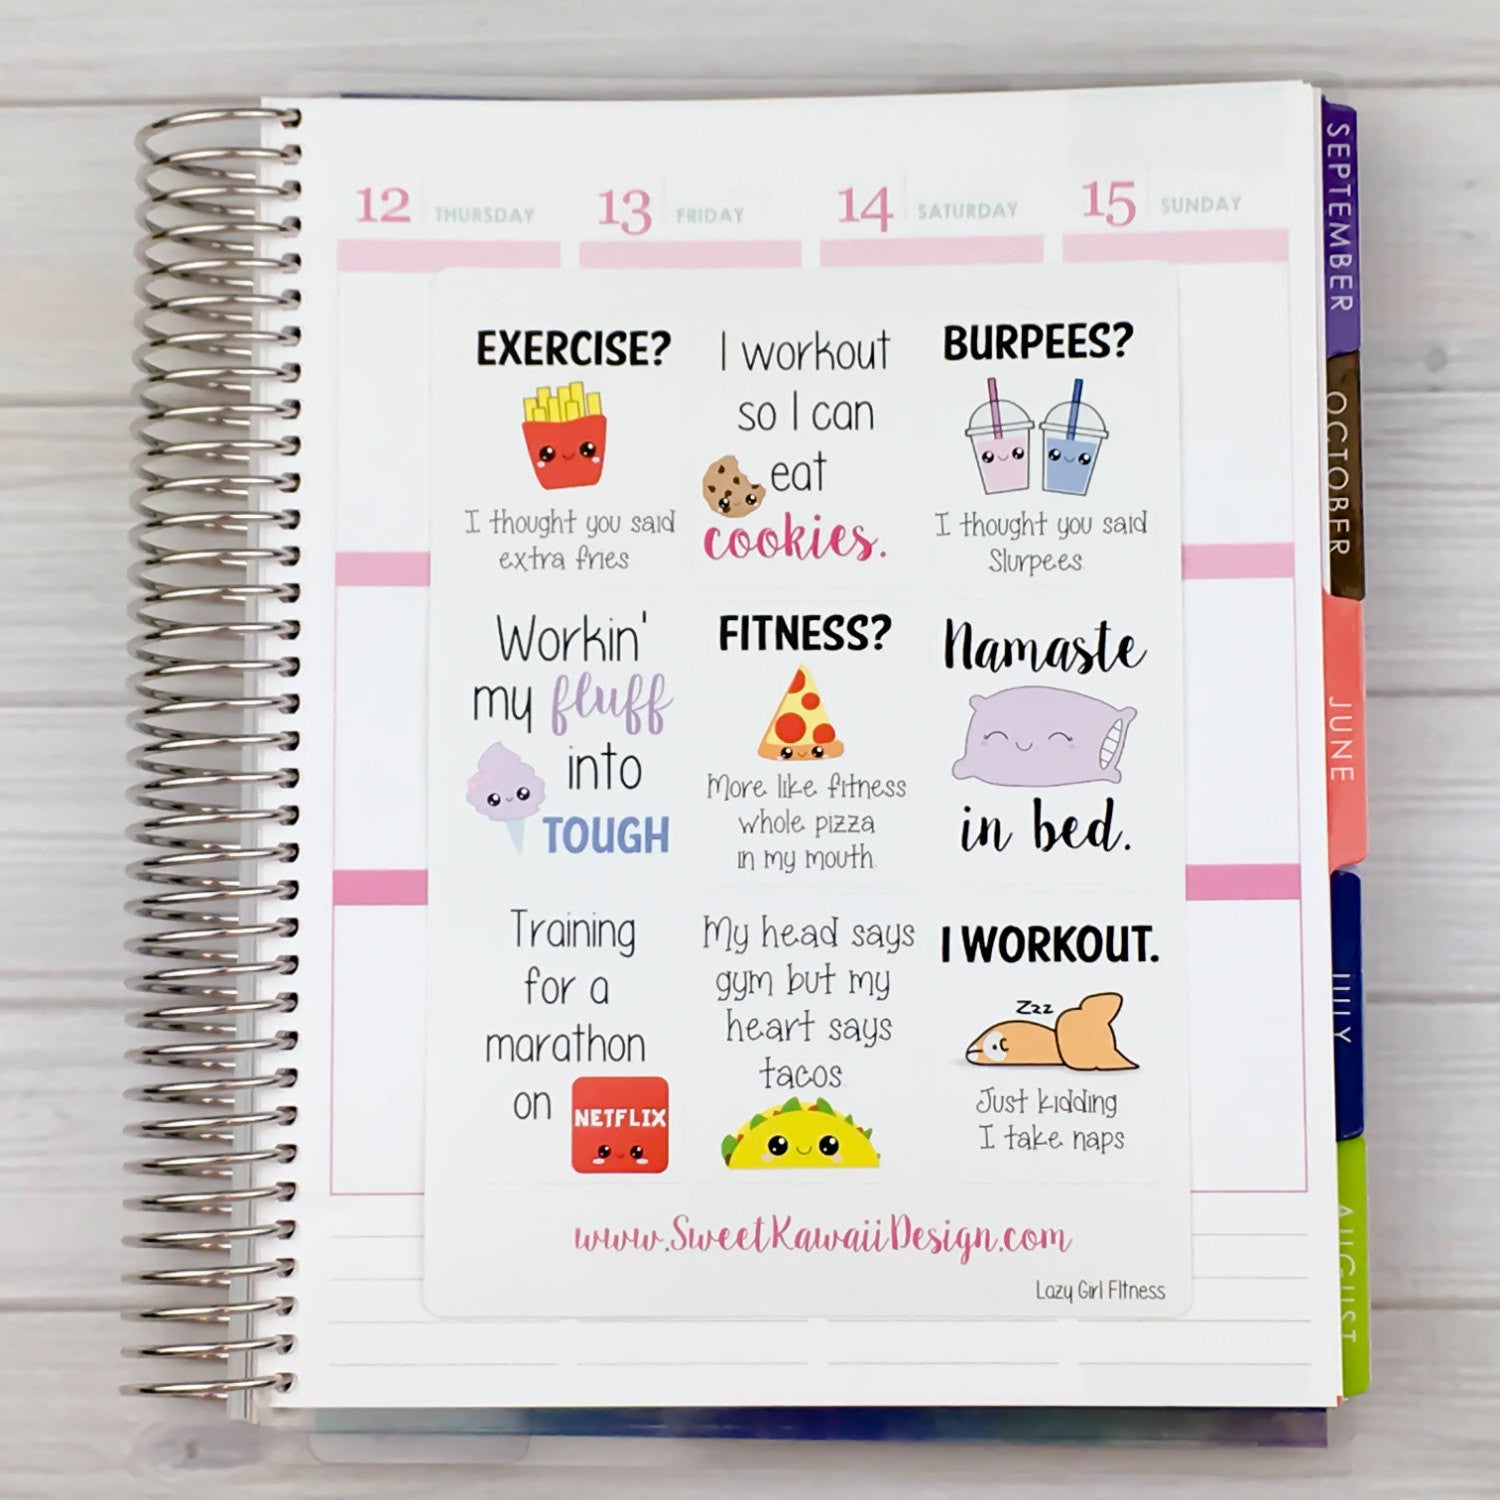 12 THURSDAY
13 FRIDAY
14 SATURDAY
15 SUNDAY
EXERCISE?
I thought you said
extra fries
I workout
so I can
eat
cookies.
BURPEES?
I thought you said
Slurpees
Workin'
my fluff
into
TOUGH
FITNESS?
More like fitness
whole pizza
in my mouth.
Namaste
in bed.
Training
for a
marathon
on NETFLIX
My head says
gym but my
heart says
tacos.
I WORKOUT.
Zzz
Just kidding
I take naps
www.SweetKawaiiDesign.com
Lazy Girl Fitness
SEPTEMBER
OCTOBER
JUNE
JULY
AUGUST